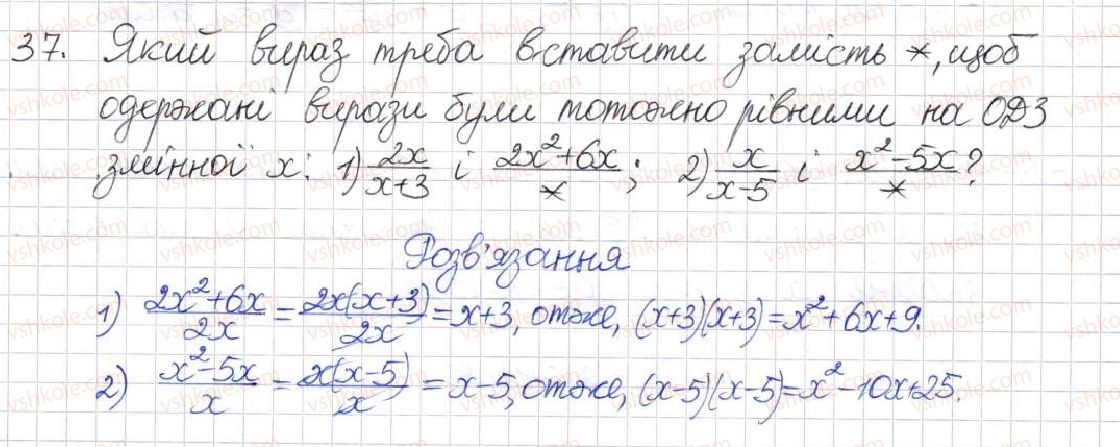 37. Який вираз треба вставити замість *, щоб
одержані вирази були тотожно рівними на ОДЗ
змінної x: 1) 2x/(x+3) і (2x²+6x)/*; 2) x/(x-5) і (x²-5x)/*?
Розв'язання
1) (2x²+6x)/2x = 2x(x+3)/2x = x+3, отже, (x+3)(x+3)=x²+6x+9.
2) (x²-5x)/x = x(x-5)/x = x-5, отже, (x-5)(x-5)=x²-10x+25.